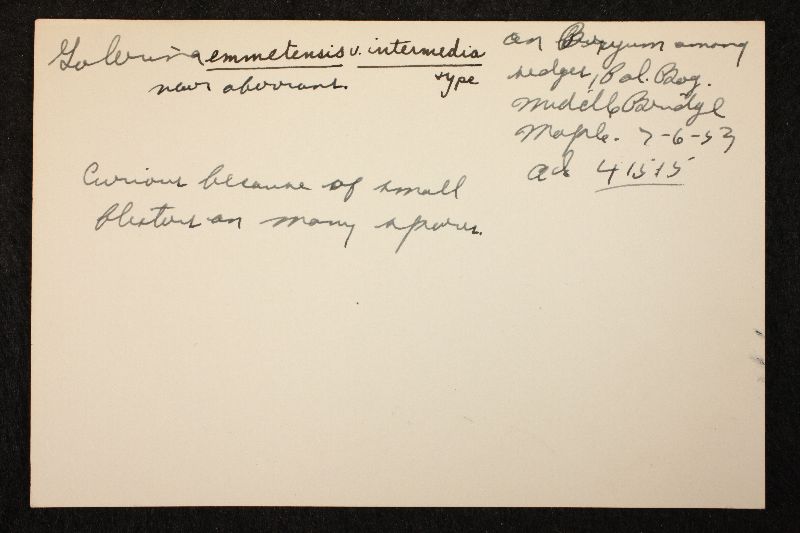 Galerina emmetensis v. intermedia
type
near aberrans.
on Bryum among
sedges, Pol. Bog.
Middle Bridge
Maple. 7-6-53
ad 41515
Curious because of small
blisters on many spores.